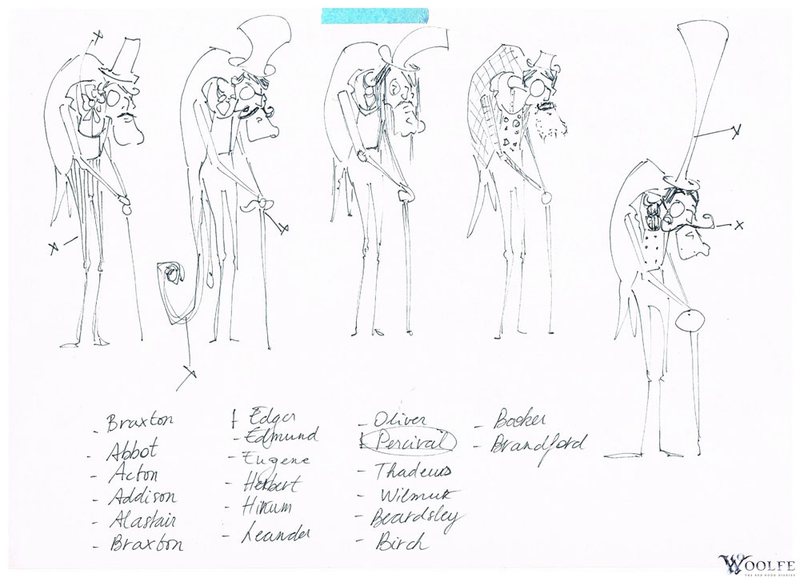 x
x
x
x
x
x
- Braxton
- Abbot
- Acton
- Addison
- Alastair
- Braxton
- Edgar
- Edmund
- Eugene
- Herbert
- Leander
- Oliver
- Percival
- Thadeus
- Beardsley
- Birch
- Booker
- Brandford
WOOLFE
THE RED HOOD DIARIES